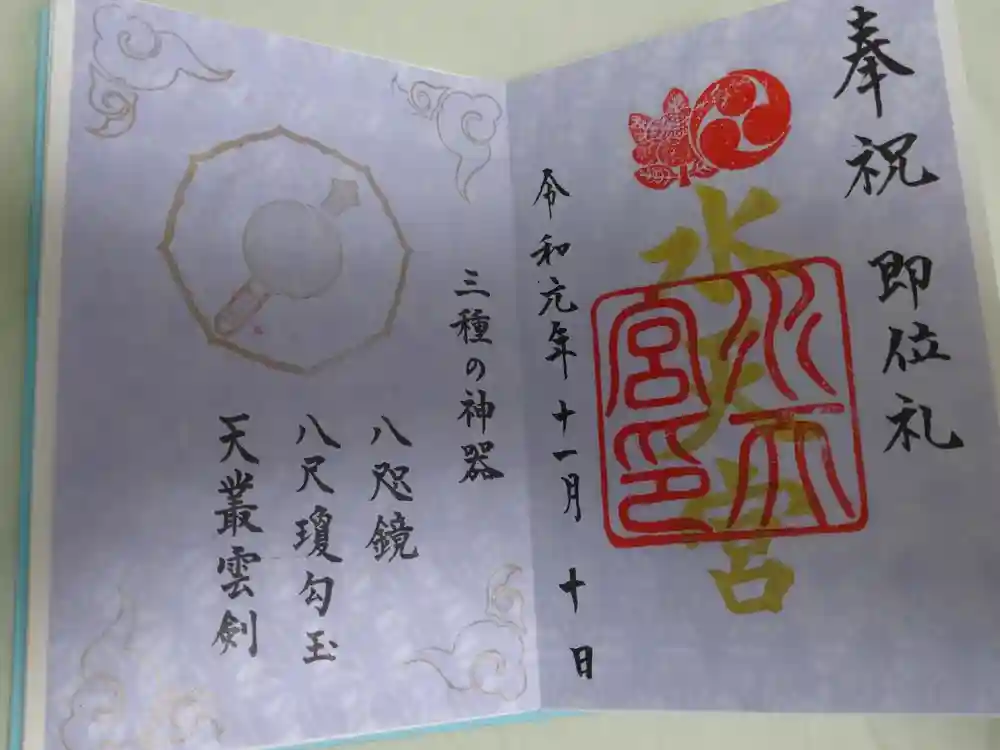 奉祝 即位礼
水天宮
水天宮印
令和元年 十一月 十日
三種の神器
八咫鏡
八尺瓊勾玉
天叢雲剣